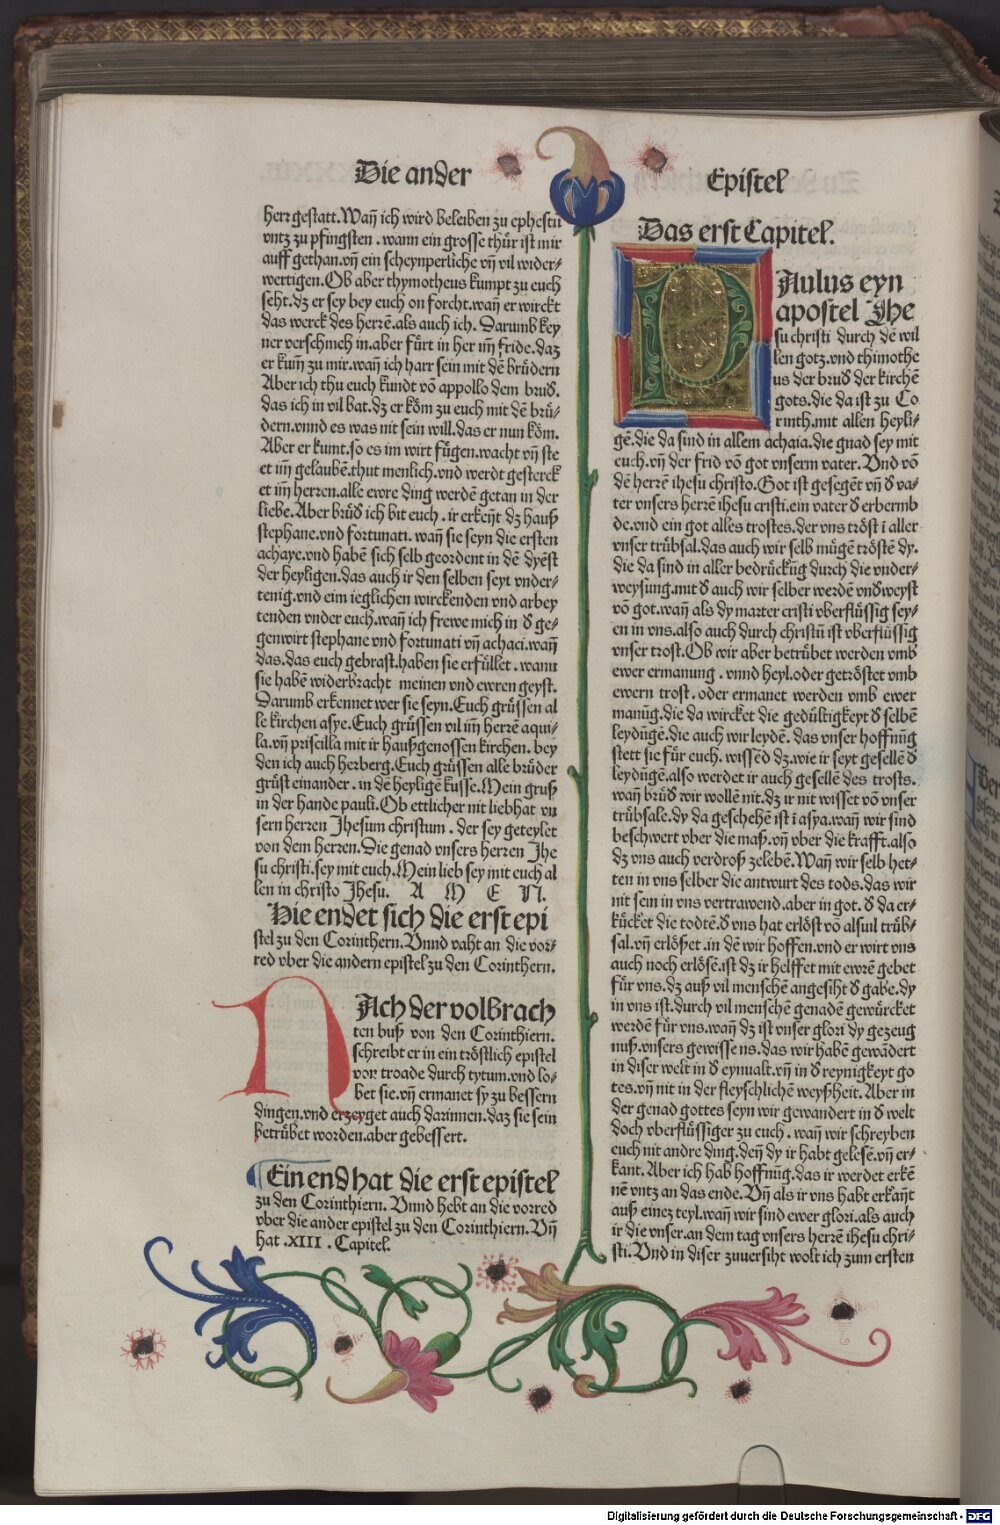 Die ander
Epistel
herr gestatt. Wañ ich wird beleiben zu ephesũ
vntz zu pfingsten. wann ein grosse thür ist mir
auff gethan. vñ ein scheynperliche vñ vil wider-
wertigen. Ob aber thymotheus kumpt zu euch
seht. dz er sey bey euch on forcht. wañ er wirckt
das werck des herrē. als auch ich. Darumb key
ner verschmeh in. aber fürt in her im̃ fride. daz
er kum̃ zu mir. wañ ich harr sein mit dē brüdern
Aber ich thu euch kundt vō appollo dem brud.
das ich in vil bat. dz er köm zu euch mit dē brü-
dern. vnnd es was nit sein will. das er nun köm.
Aber er kumt. so es im wirt fügen. wacht vñ ste
et im̃ gelaubē. thut menlich. vnd werdt gesterck
et im̃ herren. alle ewre ding werdē getan in der
liebe. Aber brüd ich bit euch. ir erkeñt dz hauß
stephane. vnd fortunati. wañ sie seyn die ersten
achaye. vnd habē sich selb geordent in dē dyēst
der heyligen. das auch ir den selben seyt vnder-
tenig. vnd eim ieglichen wirckenden vnd arbey
tenden vnder euch. wañ ich frewe mich in d ge-
genwirt stephane vnd fortunati vñ achaci. wañ
das. das euch gebrast. haben sie erfüllet. wann
sie habē widerbracht meinen vnd ewren geyst.
Darumb erkennet wer sie seyn. Euch grüssen al
le kirchen asye. Euch grüssen vil im̃ herrē aqui-
la. vñ priscilla mit ir haußgenossen kirchen. bey
den ich auch herberg. Euch grüssen alle brüder
grüst einander. in dē heyligē kusse. Mein gruß
in der hande pauli. Ob ettlicher nit liebhat vn
sern herren Jhesum christum. der sey geteylet
von dem herren. Die genad vnsers herren Jhe
su christi. sey mit euch. Mein lieb sey mit euch al
len in christo Jhesu. A M E N.
Hie endet sich die erst epi
stel zu den Corinthern. Vnnd vaht an die vor-
red vber die andern epistel zu den Corinthern.
NAch der volbrach
ten buß von den Corinthiern.
schreibt er in ein tröstlich epistel
von troade durch tytum. vnd lo-
bet sie. vñ ermanet sy zu bessern
dingen. vnd erzeyget auch darinnen. daz sie sein
betrübet worden. aber gebessert.
Ein end hat die erst epistel
zu den Corinthiern. Vnnd hebt an die vorred
vber die ander epistel zu den Corinthiern. Vñ
hat .XIII. Capitel.
Das erst Capitel.
PAulus eyn
apostel Jhe
su christi durch dē wil
len gotz. vnd thimothe
us der brud der kirchē
gots. die da ist zu Co
rinth. mit allen heyli-
gē. die da sind in allem achaia. die gnad sey mit
euch. vñ der frid vō got vnserm vater. Vnd vō
dē herrē ihesu christo. Got ist gesegēt vñ d va-
ter vnsers herrē ihesu cristi. ein vater d erbermb
de. vnd ein got alles trostes. der vns tröst ī aller
vnser trübsal. das auch wir selb mügē tröstē dy.
die da sind in aller bedrückũg durch die vnder-
weysũng. mit d auch wir selber werdē vndweyst
vō got. wañ als dy marter cristi vberflüssig sey-
en in vns. also auch durch christũ ist vberflüssig
vnser trost. Ob wir aber betrübet werden vmb
ewer ermanung. vnnd heyl. oder getröstet vmb
ewern trost. oder ermanet werden vmb ewer
manũg. die da wircket die gedültigkeyt d selbē
leydũgē. die auch wir leydē. das vnser hoffnũg
stett sie für euch. wissēd dz. wie ir seyt gesellē d
leydũgē. also werdet ir auch gesellē des trosts.
wañ brüd wir wollē nit. dz ir nit wisset vō vnser
trübsale. dy da geschehē ist ī asya. wañ wir sind
beschwert vber die maß. vñ vber die krafft. also
dz vns auch verdroß zelebē. Wañ wir selb het-
ten in vns selber die antwurt des tods. das wir
nit sein in vns vertrawend. aber in got. d da er-
kücket die todtē. d vns hat erlöst vō alsuil trüb-
sal. vñ erlößet. in dē wir hoffen. vnd er wirt vns
auch noch erlösē. ist dz ir helffet mit ewrē gebet
für vns. dz auß vil menschē angesiht d gabe. dy
in vns ist. durch vil menschē genadē gewürcket
werdē für vns. wañ dz ist vnser glori dy gezeug
nuß. vnsers gewissens. das wir habē gewādert
in diser welt in d eynualt. vñ in d reynigkeyt go
tes. vñ nit in der fleyschlichē weyßheit. Aber in
der genad gottes seyn wir gewandert in d welt
doch vberflüssiger zu euch. wañ wir schreyben
euch nit andre ding. deñ dy ir habt gelesē. vñ er-
kant. Aber ich hab hoffnũg. das ir werdet erkē
nē vntz an das ende. Vñ als ir vns habt erkañt
auß einez teyl. wañ wir sind ewer glori. als auch
ir die vnser. an dem tag vnsers herrē ihesu chri-
sti. Vnd in diser zuuersiht wolt ich zum ersten
Digitalisierung gefördert durch die Deutsche Forschungsgemeinschaft - DFG